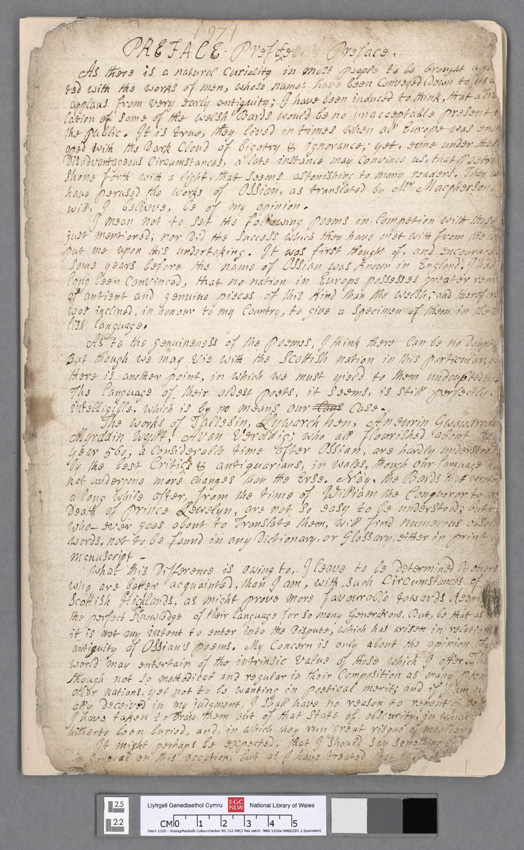 1971
PREFACE. Preface Preface.
As there is a natural Curiosity in most people to be brought
ted with the works of men, whose names have been Conveyed Down to us
applaus from very Early antiquity; I have been induced to think, that a
lation of some of the Welsh Bards would be no unacceptable present
the public. It is true, they lived in times when all Europe was
oped with the Dark Cloud of bigotry & ignorance; yet, even under
Disadvantageous Circumstances, a late instance may Convince us, that
shone forth with a light, that seems astonishing to many readers. They
have perused the works of Ossion, as translated by Mr. Macpherson,
will, I believe, be of my opinion.
I mean not to set the following poems in Competion with
just mentioned; nor Did the success which they have met with from the
put me upon this undertaking. It was first thought of, and Encouraged
some years before the name of Ossian was known in England. I had
long been Convinced, that no nation in Europe possesses greater
of antient and genuine pieces of this kind than the Welsh; and therefore
was inclined, in honour to my Country, to give a Specimen of them in the
lish Language.
As to the genuineness of the Poemes, I think there can be no Doubt
But though we may vie with the Scottish nation in this particular,
there is another point, in which we must yield to them undoubtedly.
The language of their oldest poets, it seems, is still perfectly
intelligible, which is by no means our Case.
The works of Taliesin, Lywarch hen, Aneurin Gwawdrydd
Myrddin Wyllt, Avan Verddig; who all flourished about the
year 560, a Considerable time after Ossian, are hardly understood
by the best Critics & antiquarians, in Wales, though our language
not undergone more changes than the Erse. Nay, the Bards that
a long while after, from the time of William the Conqueror to
Death of Prince Llewelyn, are not so easy to be understood; but
who ever goes about to translate them, will find numerous
words, not to be found in any Dictionary, or Glossary, either in print
manuscript -
What this Difference is owing to, I leave to be determined by others
who are better acquainted, than I am, with such Circumstances of
Scottish Highlands, as might prove more favourable towards
the perfect Knowledge of their language for so many Generations. But, be that as
it is not my intent to enter into the Dispute, which has arisen in relation
antiquity of Ossians poems. My Concern is only about the opinion
world may entertain of the intrinsic value of those which I offer
though not so methodical and regular in their Composition as many
other nations, yet not to be wanting in poetical merit; and if I am
ally deceived in my judgment, I shall have no reason to repent
I have taken to draw them out of that state of obscurity, in which
hitherto been buried, and, in which they run great risque of
It might perhaps be expected, that I should say something
in General on this occation; but as I have treated
Llyfrgell Genedlaethol Cymru GEC NLW National Library of Wales
2.5
2.2
CM 0 1 2 3 4 5